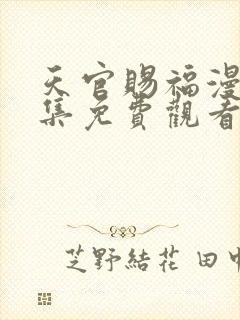 天官賜福漫
集免費觀看
芝野結花 田中